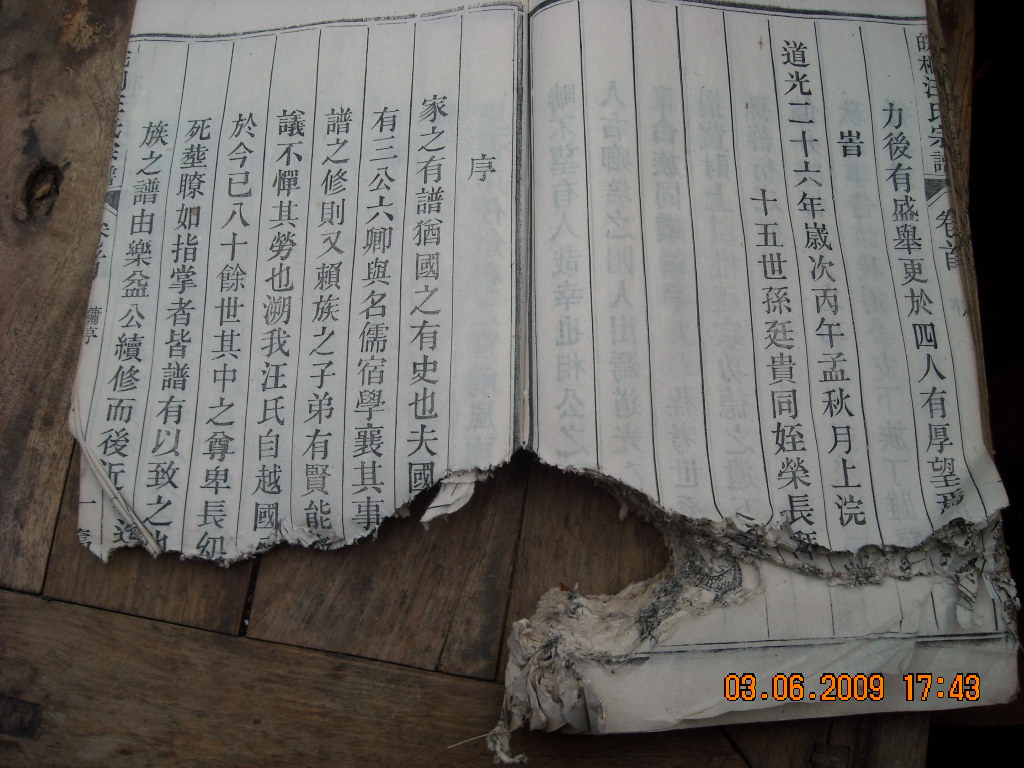 汪氏宗譜 卷首
力後有盛舉更於四人有厚望焉
旹
道光二十六年歲次丙午孟秋月上浣
十五世孫廷貴同姪榮長
序
家之有譜猶國之有史也夫國
有三公六卿與名儒宿學襄其事
譜之修則又賴族之子弟有賢能
議不憚其勞也溯我汪氏自越國
於今已八十餘世其中之尊卑長幼
死塟瞭如指掌者皆譜有以致之也
族之譜由樂益公續修而後近
03.06.2009 17:43